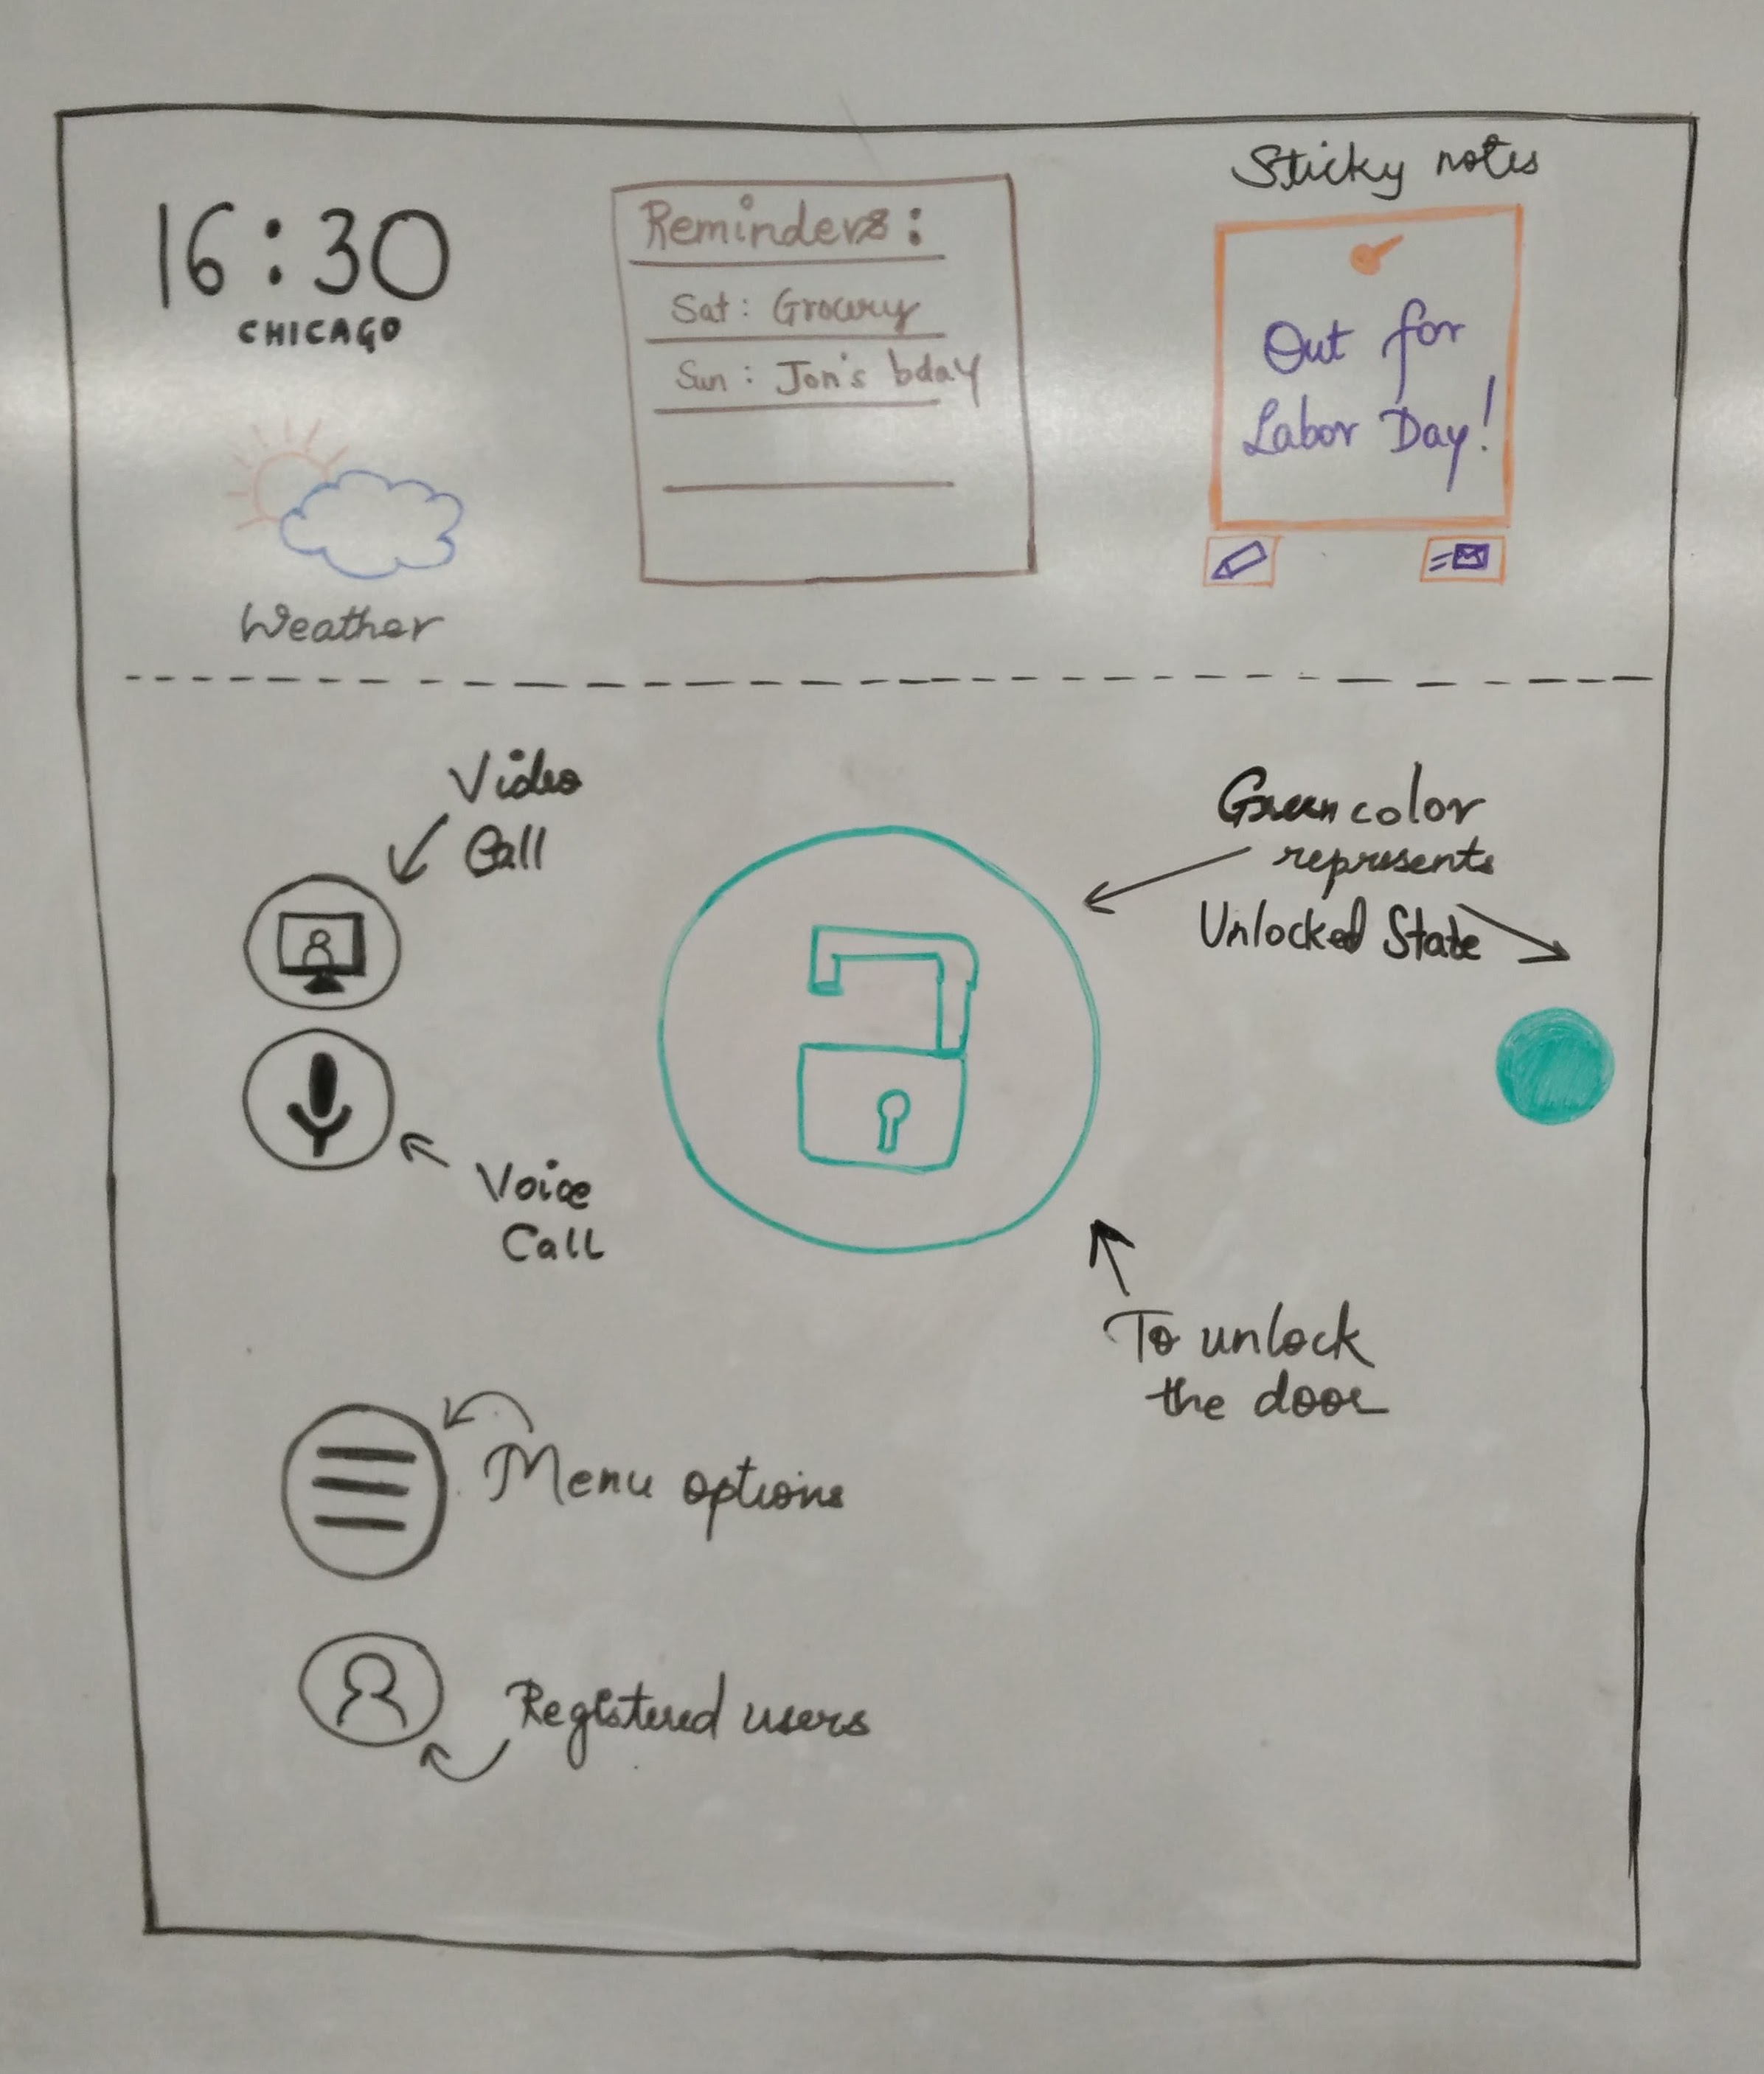 16:30
CHICAGO
Weather
Reminders:
Sat: Grocery
Sun: Jon's bday
Sticky notes
Out for
Labor Day!
Video
Call
Voice
Call
Green color
represents
Unlocked State
To unlock
the door
Menu options
Registered users